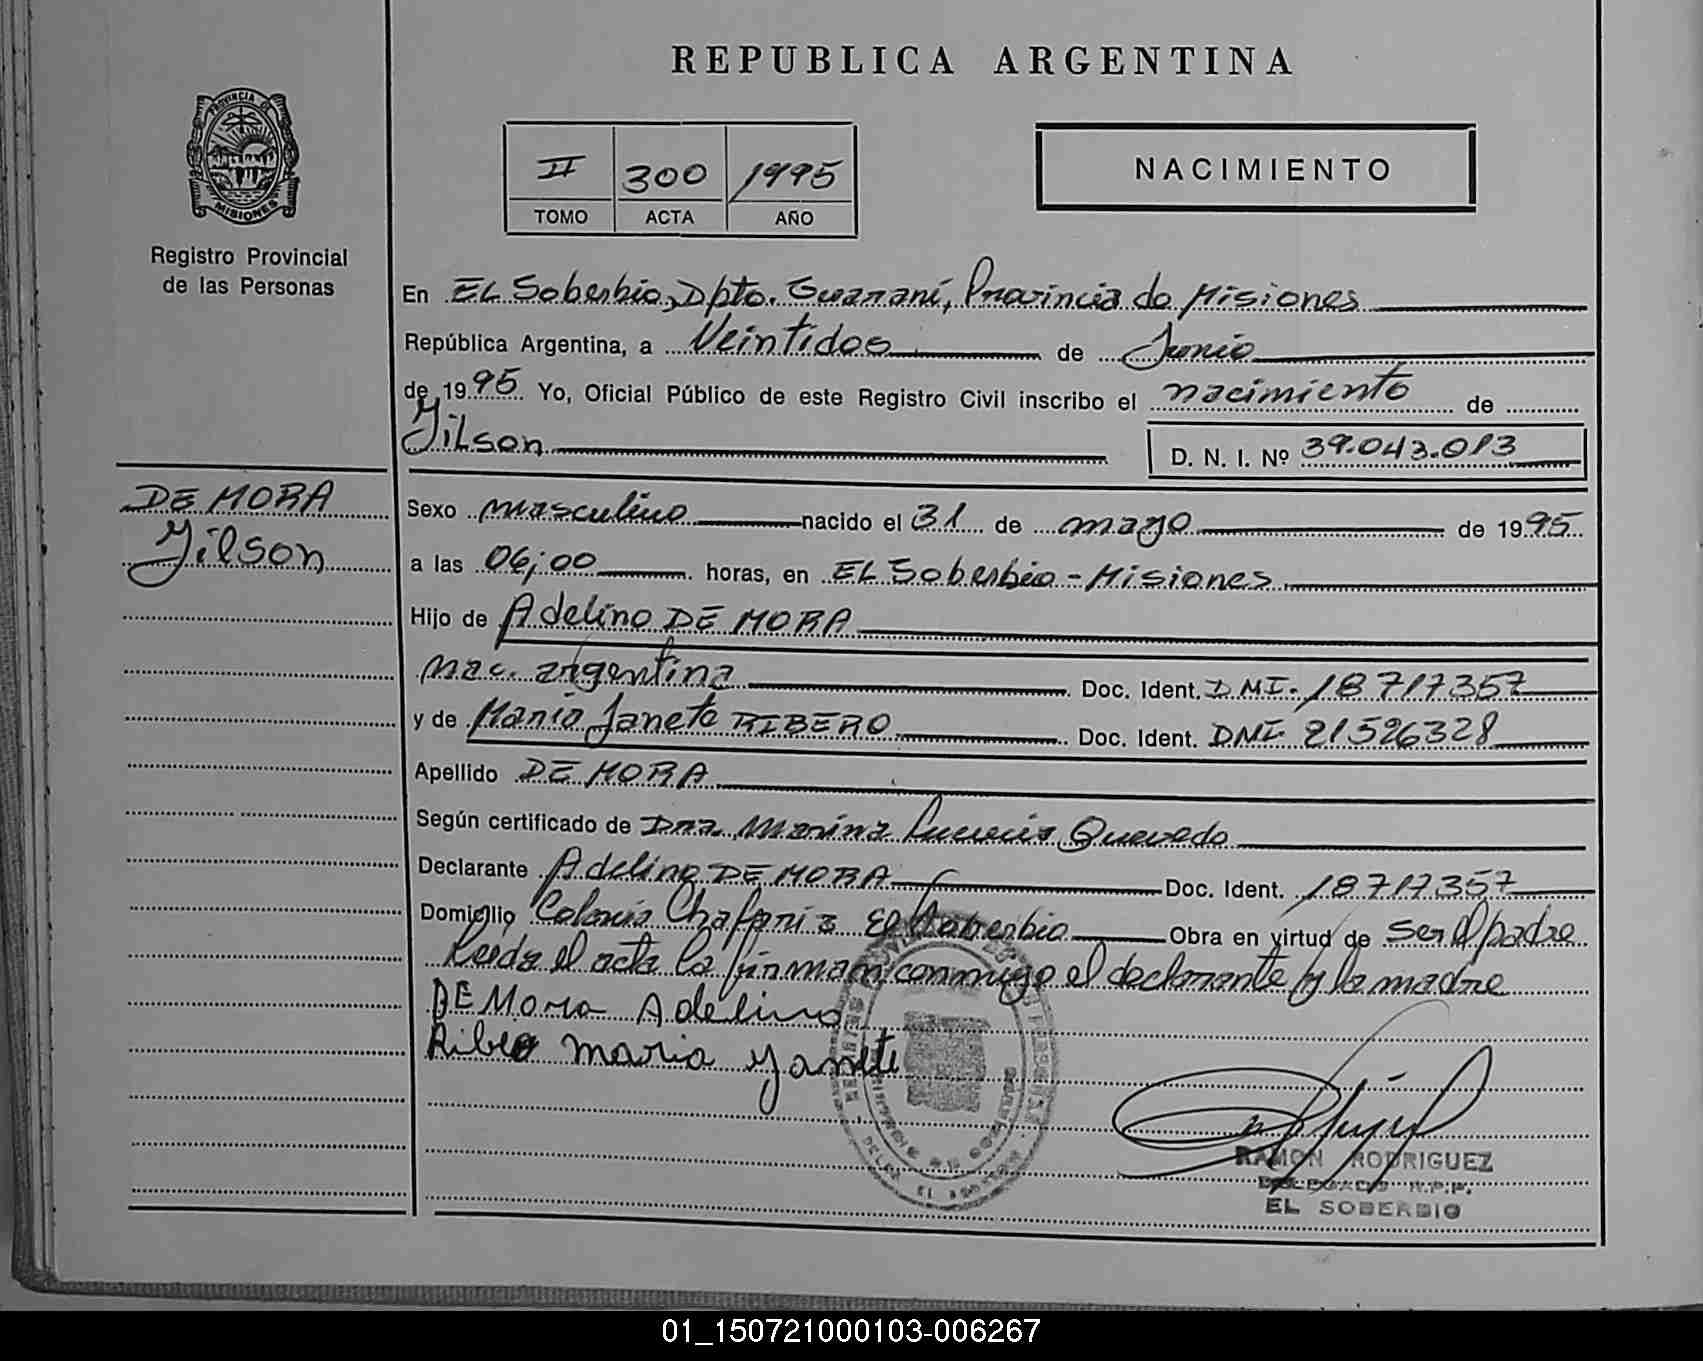 REPUBLICA ARGENTINA
PROVINCIA DE
MISIONES
Registro Provincial
de las Personas
II 300 1995
TOMO ACTA AÑO
NACIMIENTO
En EL Soberbio, Dpto. Guaraní, Provincia de Misiones
República Argentina, a Veintidos de Junio
de 1995 Yo, Oficial Público de este Registro Civil inscribo el nacimiento de
Jilson
D. N. I. Nº 39.043.013
DE MORA
Jilson
Sexo masculino nacido el 31 de mayo de 1995
a las 06;00 horas, en EL Soberbio - Misiones
Hijo de Adelino DE MORA
nac. argentina Doc. Ident. DNI. 18717357
y de Maria Janete RIBERO Doc. Ident. DNI 21526328
Apellido DE MORA
Según certificado de Dra. Marina Lucrecia Quevedo
Declarante Adelino DE MORA Doc. Ident. 18717357
Domicilio Colonia Chafariz El Soberbio Obra en virtud de ser el padre
Leida el acta la firman conmigo el declarante y la madre
DE Mora Adelino
Ribeo maria yanete
RAMON RODRIGUEZ
DELEGADO R.P.P.
EL SOBERBIO
01_150721000103-006267